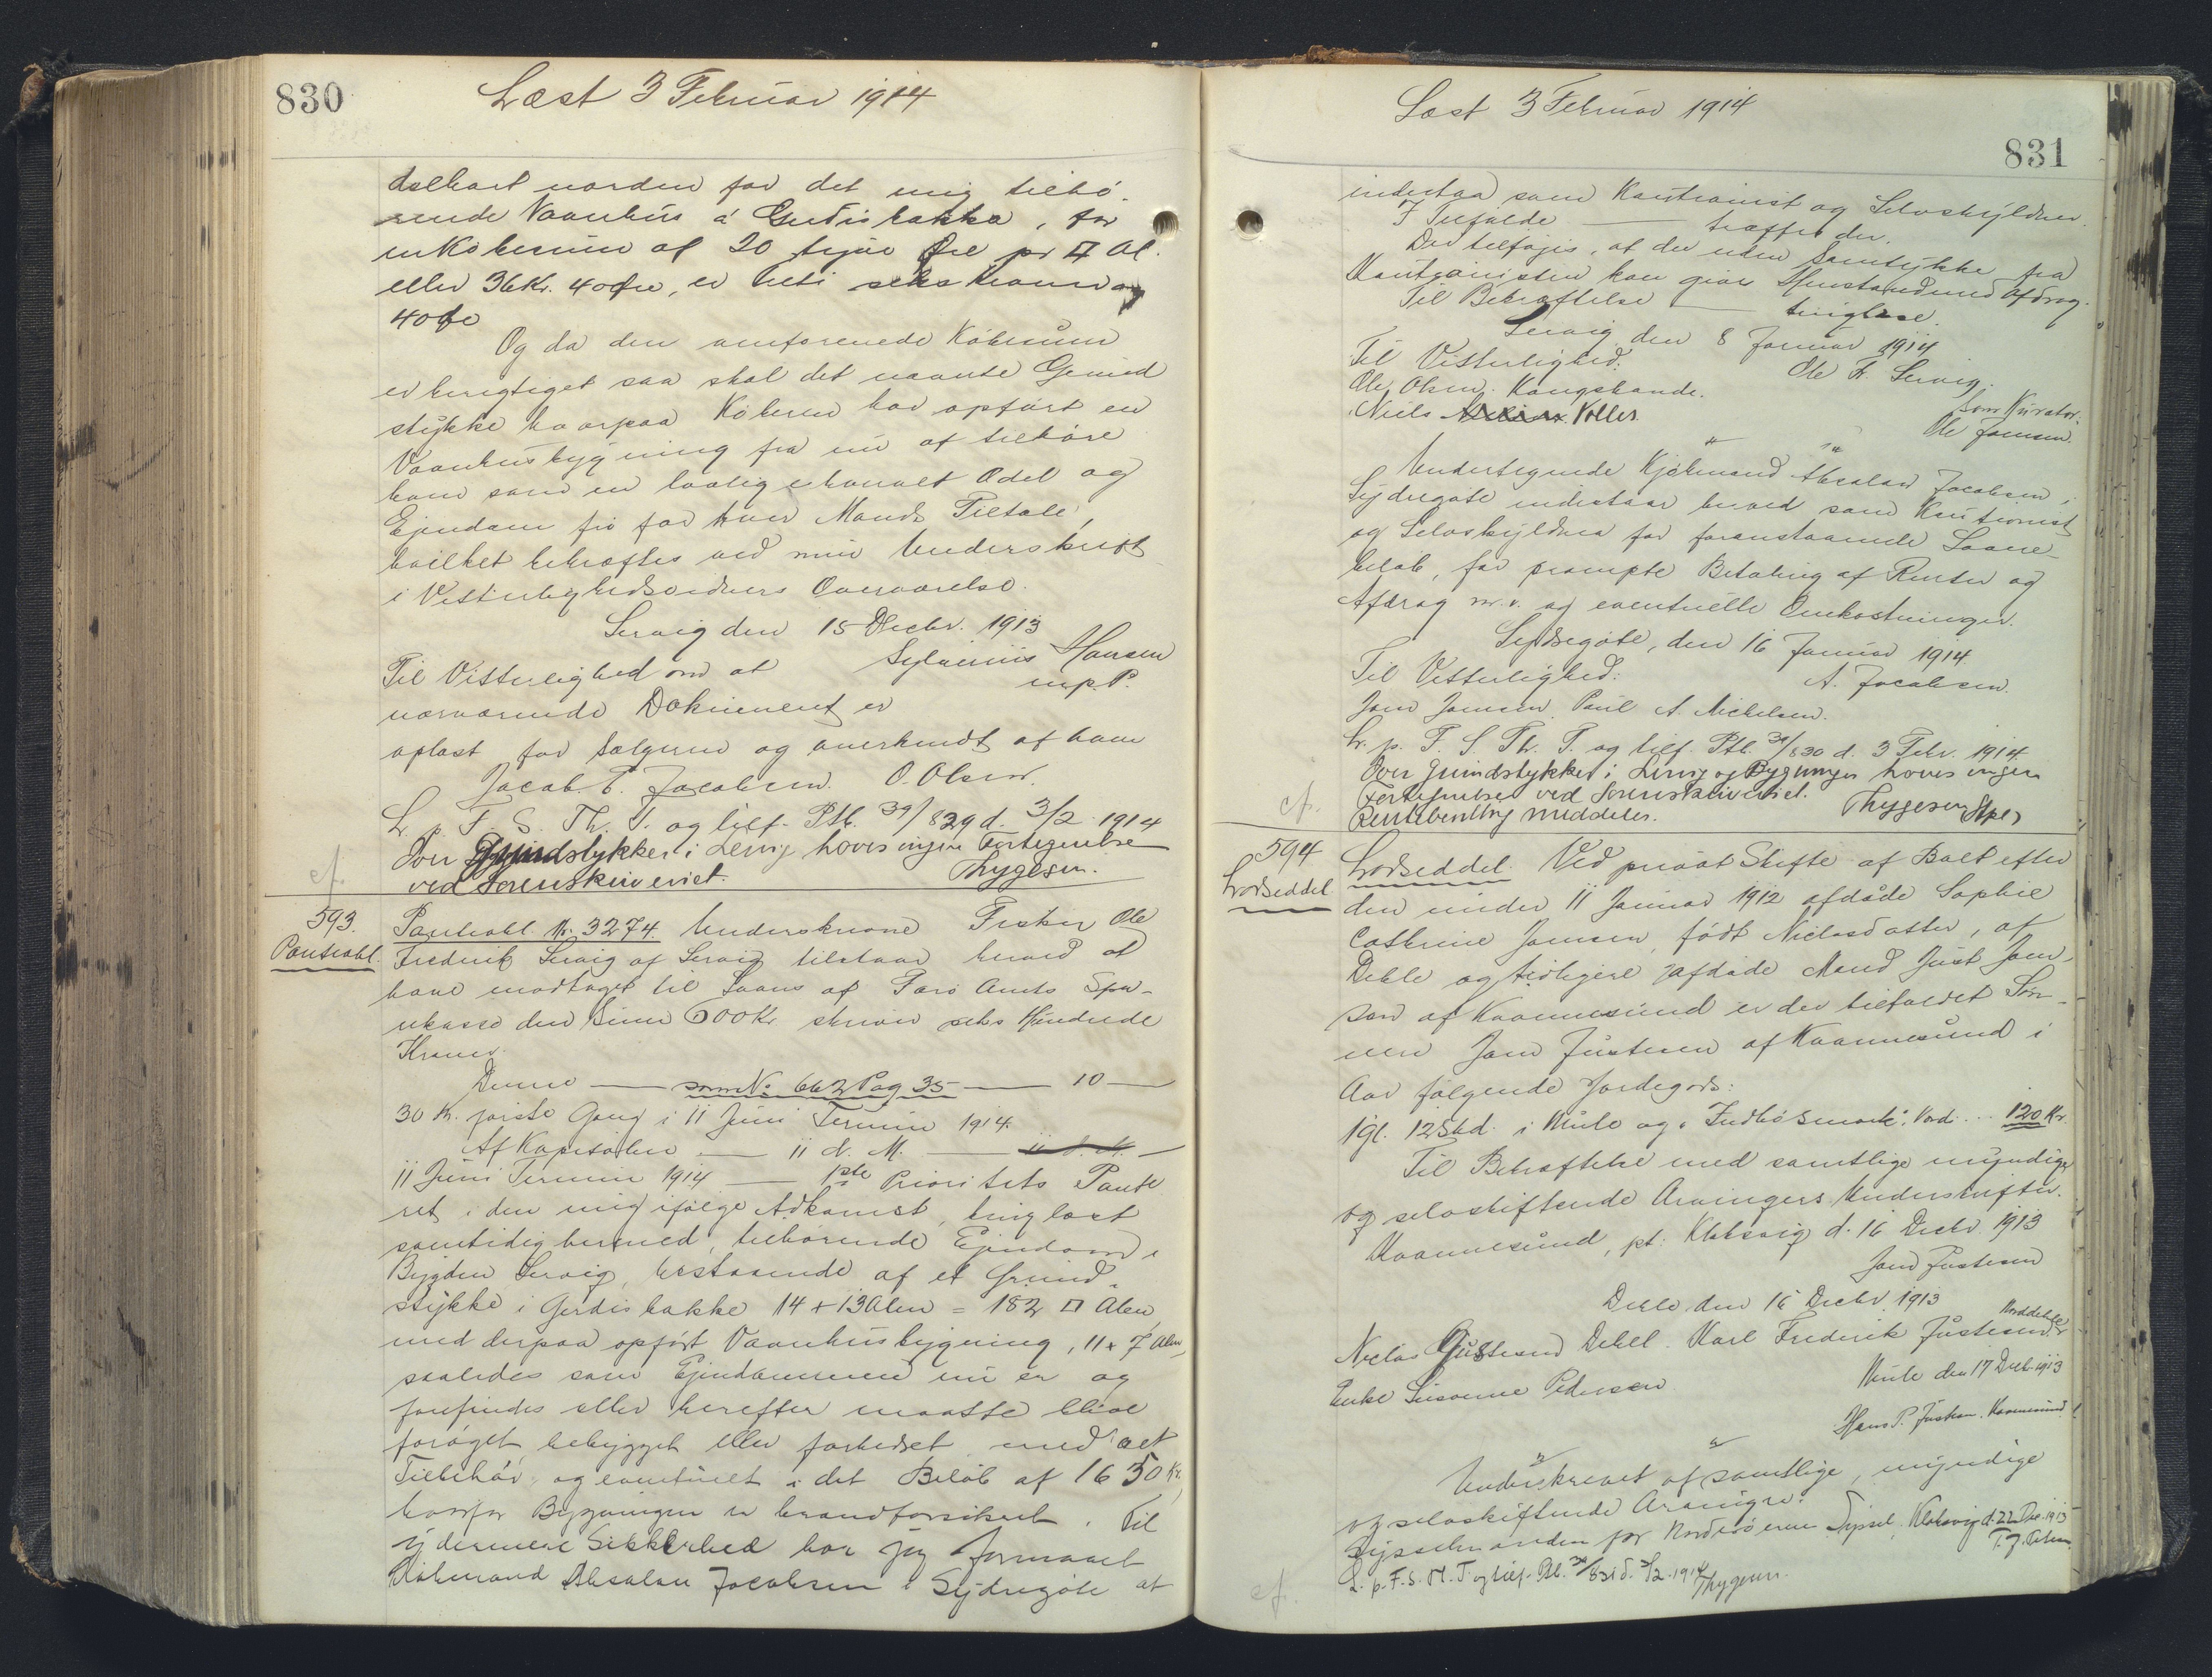 830
Læst 3 Februar 1914
norden for det mig tilhø-
rende Vaanhus á Gerdisbakka, for
en Købesum af 20 tyve Øre pr □ Al.
eller 36 Kr. 40 Øre, er seks Kroner og
40 Øre
Og da den omforenede Købesum
er berigtiget saa skal det nævnte Grund
stykke hvorpaa Køberen har opført en
Vaanhusbygning fra nu af tilhøre
ham som en lovlig erhvervet Odel og
Ejendom fri for hver Mands Tiltale,
hvilket bekræftes ved min Underskrift
i Vitterlighedsvidners Overværelse.
Lervig den 15 Decbr. 1913
Til Vitterlighed om at Sylverius Hansen
nærværende Dokument er m.p.P.
oplæst for Sælgeren og anerkendt af ham
Jacob E. Jacobsen. O. Olsen.
L. p. F. S. Th. T. og lief. Ptb. 39/829 d. 3/2 1914
Over Grundstykker i Lervig haves ingen Fortegnelse
ved Sorenskriveriet. Thygesen.
cf.
593.
Panteobl.
Panteobl. Nr. 3274. Underskrevne Fisker Ole
Frederik Lervig af Lervig tilstaar herved at
have modtaget til Laans af Færø Amts Spa-
rekasse den Sum 600 Kr. skriver seks Hundrede
Kroner.
Denne — som No 662 Pag 35 — 10 —
30 Kr. første Gang i 11 Juni Termin 1914.
Af Kapitalen — 11 d. M. — 11 d. M. —
11 Juni Termin 1914 — 1ste Prioritets Pante
ret i den mig ifølge Adkomst, tinglæst
samtidig hermed, tilhørende Ejendom i
Bygden Lervig, bestaaende af et Grund-
stykke i Gerdisbakke 14 x 13 Alen = 182 □ Alen,
med derpaa opført Vaanhusbygning, 11 x 7 Alen,
saaledes som Ejendommen nu er og
forefindes eller herefter maatte blive
forøget, bebygget eller forbedret med alt
Tilbehør, og eventuelt i det Beløb af 1650 Kr.
hvorfor Bygningen er brandforsikret. Til
ydermere Sikkerhed har jeg formaaet
Købmand Absalon Jacobsen i Sydregøte at
Læst 3 Februar 1914
831
indestaa som Kautionist og Selvskyldner.
I Tilfælde — træffes der.
Det tilføjes, at der uden Samtykke fra
Kautionisten kan gives Henstand med Afdrag.
Til Bekræftelse — tinglæse.
Lervig den 8 Januar 1914
Til Vitterlighed: Ole Fr. Lervig.
Ole Olsen. Kongsbonde. Som Kurator:
Niels Voller. Ole Jensen.
Undertegnede Kjøbmand Absalon Jacobsen i
Sydregøte indestaar herved som Kautionist
og Selvskyldner for foranstaaende Laane-
beløb, for prompte Betaling af Renter og
Afdrag m.v. og eventuelle Omkostninger.
Sydregøte, den 16 Januar 1914.
Til Vitterlighed: A. Jacobsen.
Joen Joensen. Poul A. Michelsen.
L. p. F. S. Th. T. og lief. Ptb. 39/830 d. 3 Febr. 1914.
Over Grundstykker i Lervig og Bygninger haves ingen
Fortegnelse ved Sorenskriveriet.
Retsbevidng meddeles. Thygesen
cf.
594
Lodseddel.
Lodseddel. Ved privat Skifte af Boet efter
den under 11 Januar 1912 afdøde Sophie
Cathrine Joensen, født Niclasdatter, af
Deble og tidligere afdøde Mand Just Joen-
sen af Kvannesund er der tilfaldet Søn-
nen Joen Justesen af Kvannesund i
Arv følgende Jordegods:
1 Gl. 12 Skd. i Mule og "Indbøsmark". Værd ... 120 Kr.
Til Bekræftelse med samtlige myndige
og selvskiftende Arvingers Underskrifter.
Kvannesund, pt. Klaksvig d. 16 Decbr 1913
Joen Justesen
Deble den 16 Decbr. 1913
Niclas Justesen Debel. Karl Frederik Justesen, Norddeble
Enke Susanne Pedersen Mule den 17 Decb. 1913
Hans P. Justesen, Kvannesund
Underskrevet af samtlige, myndige
og selvskiftende Arvinger.
Sysselmanden for Norderøerne Syssel, Klaksvig d. 22 Dec. 1913
L. p. F. S. Th. T. og lief. Ptb. 39/831 d. 3/2 1914 Thygesen.
cf.